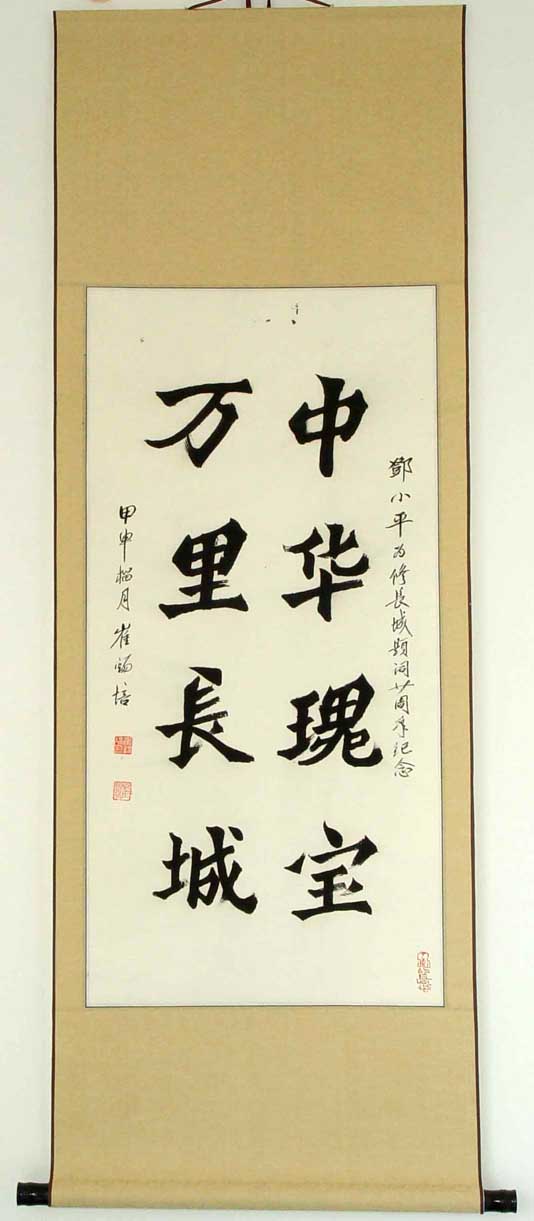 鄧小平为修長城题词廿周年纪念
中华瑰宝
万里長城
甲申榴月 崔錫培